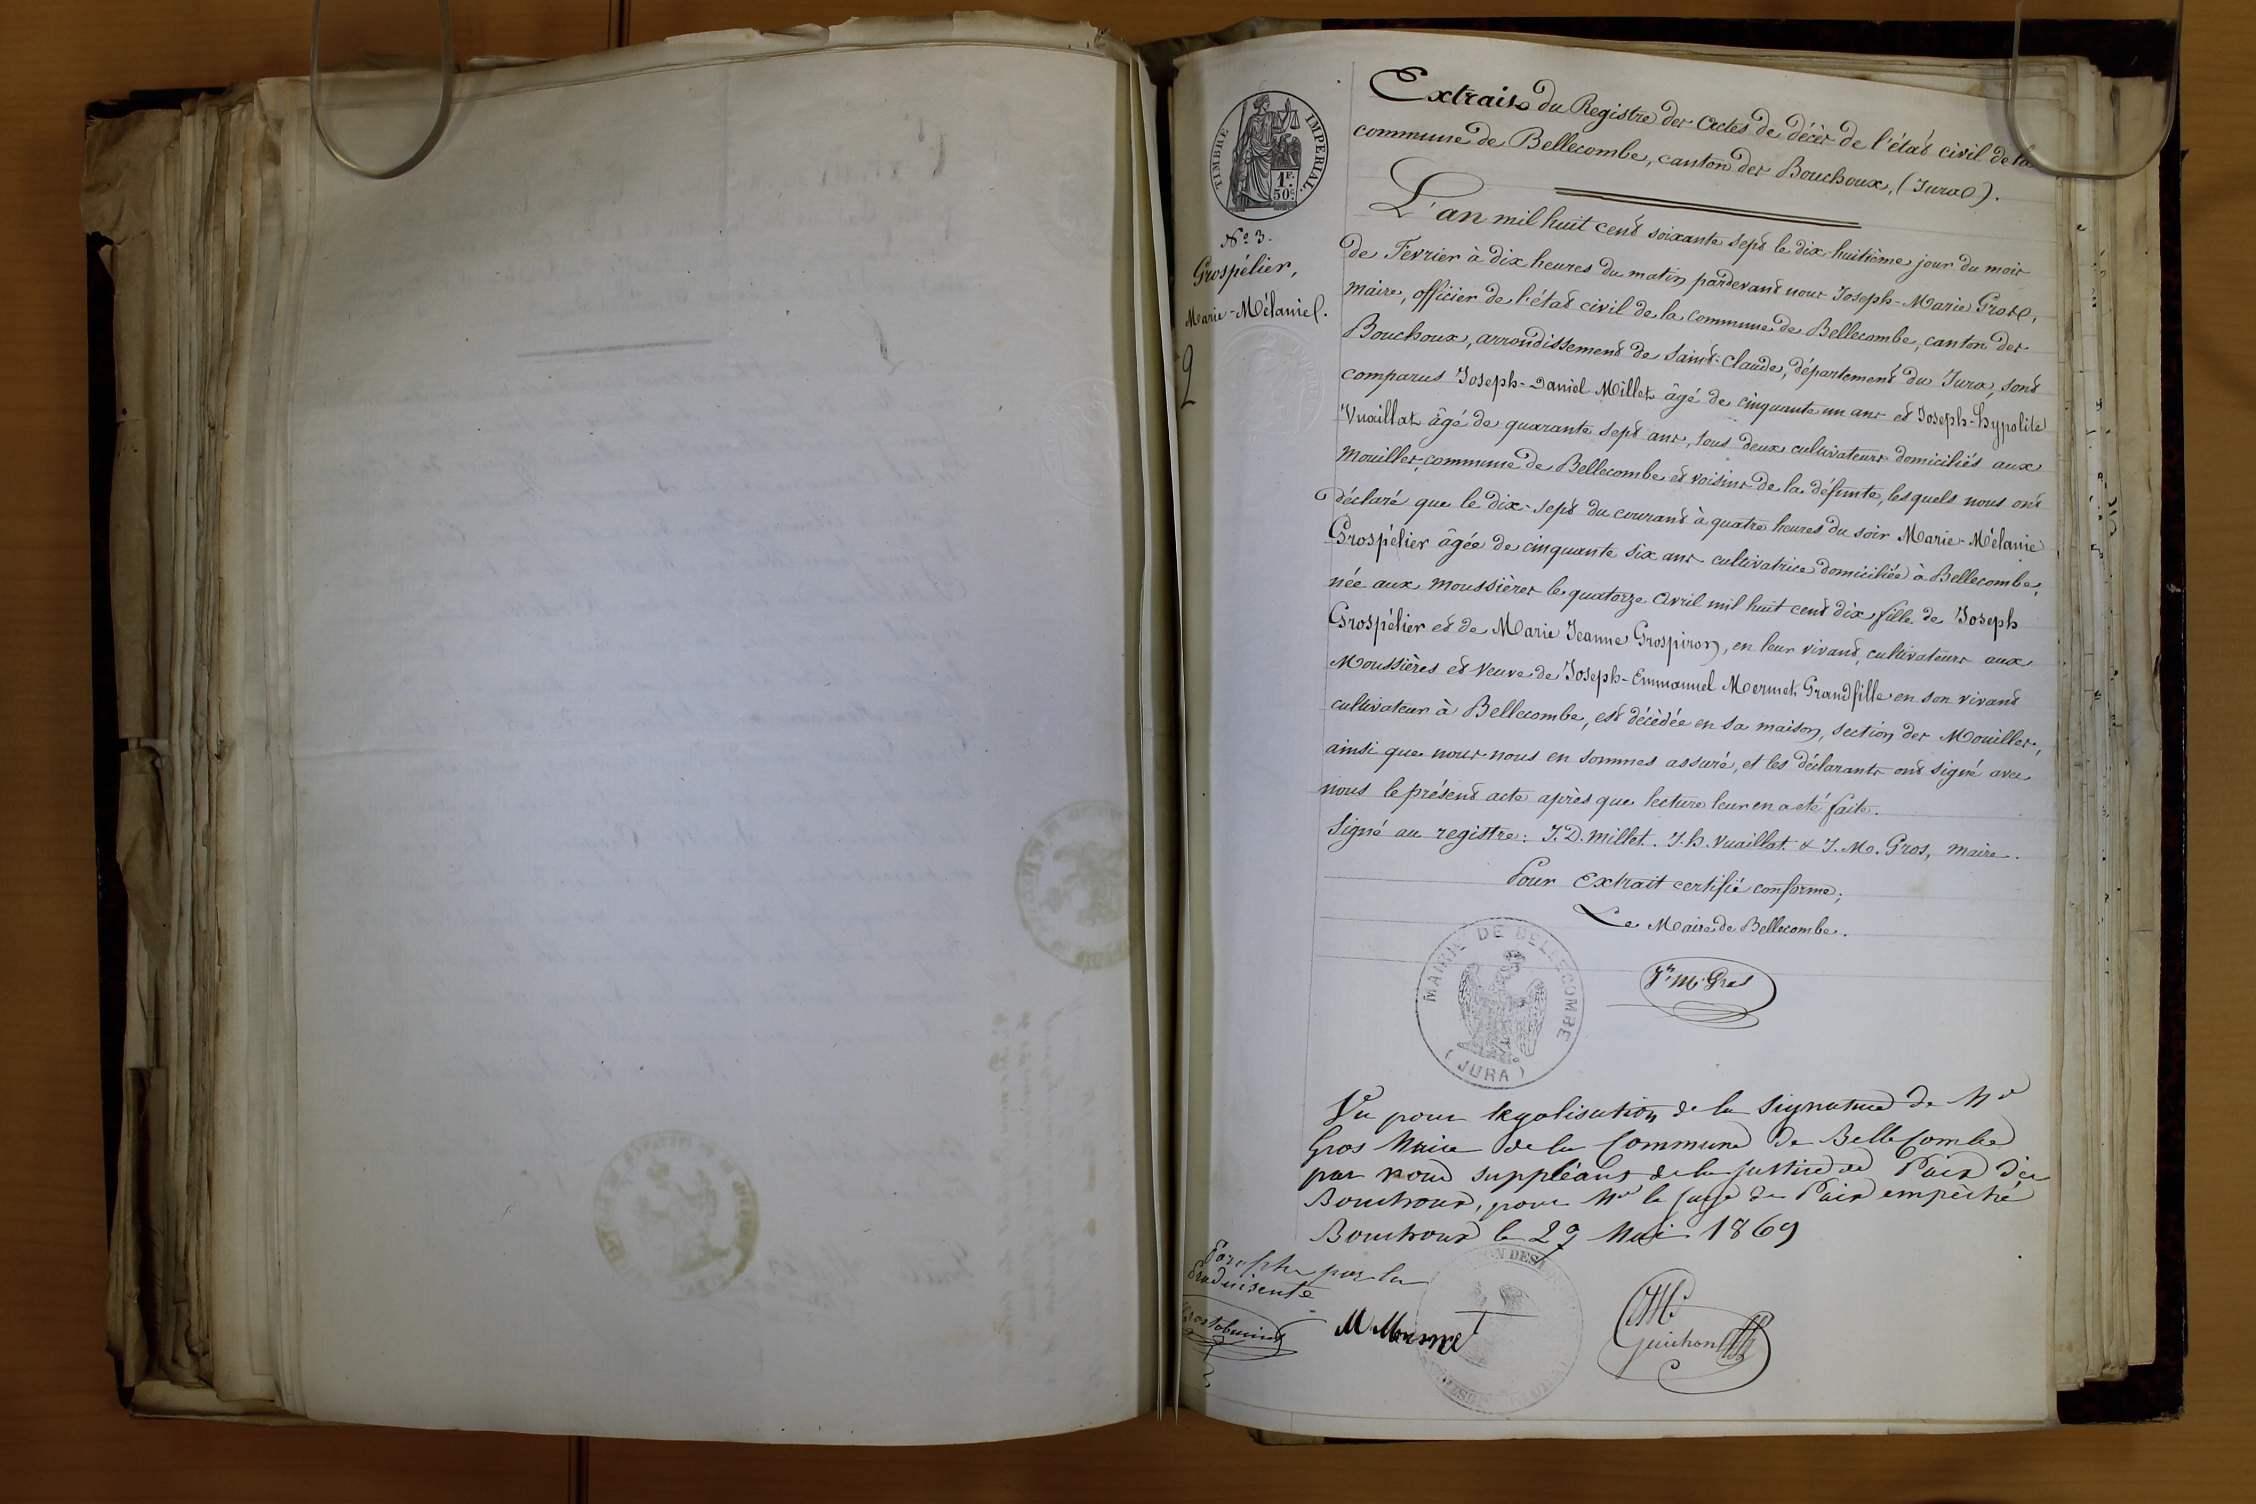 Extrait du Registre des Actes de décès de l'état civil de la
commune de Bellecombe, canton des Bouchoux, (Jura).
TIMBRE IMPERIAL
1F.
50c
N° 3.
Grospélier,
Marie-Mélanie.
2
L'an mil huit cent soixante sept le dix-huitième jour du mois
de Février à dix heures du matin pardevant nous Joseph-Marie Gros,
maire, officier de l'état civil de la commune de Bellecombe, canton des
Bouchoux, arrondissement de Saint-Claude, département du Jura, sont
comparus Joseph-Daniel Millet âgé de cinquante un ans et Joseph-hypolite
Vuaillat âgé de quarante sept ans, tous deux cultivateurs domiciliés aux
Mouilles, commune de Bellecombe et voisins de la défunte, lesquels nous ont
déclaré que le dix-sept du courant à quatre heures du soir Marie-Mélanie
Grospélier âgée de cinquante six ans cultivatrice domiciliée à Bellecombe,
née aux Moussières le quatorze Avril mil huit cent dix fille de Joseph
Grospélier et de Marie Jeanne Grospiron, en leur vivant, cultivateurs aux
Moussières et veuve de Joseph-Emmanuel Mermet Grandfille en son vivant
cultivateur à Bellecombe, est décédée en sa maison, section des Mouilles,
ainsi que nous nous en sommes assuré, et les déclarants ont signé avec
nous le présent acte après que lecture leur en a été faite.
Signé au registre: J.D. Millet. J.h. Vuaillat & J.M. Gros, maire.
Pour Extrait certifié conforme;
Le Maire de Bellecombe.
Jh M. Gros
MAIRIE DE BELLECOMBE
(JURA)
Vu pour légalisation de la Signature de Mr
Gros Maire de la Commune de BelleCombe
par nous suppléant de la Justice de Paix des
Bouchoux, pour Mr le Juge de Paix empêché
Bouchoux le 29 Mai 1869
Paraphé par la
Produisente
Guichon